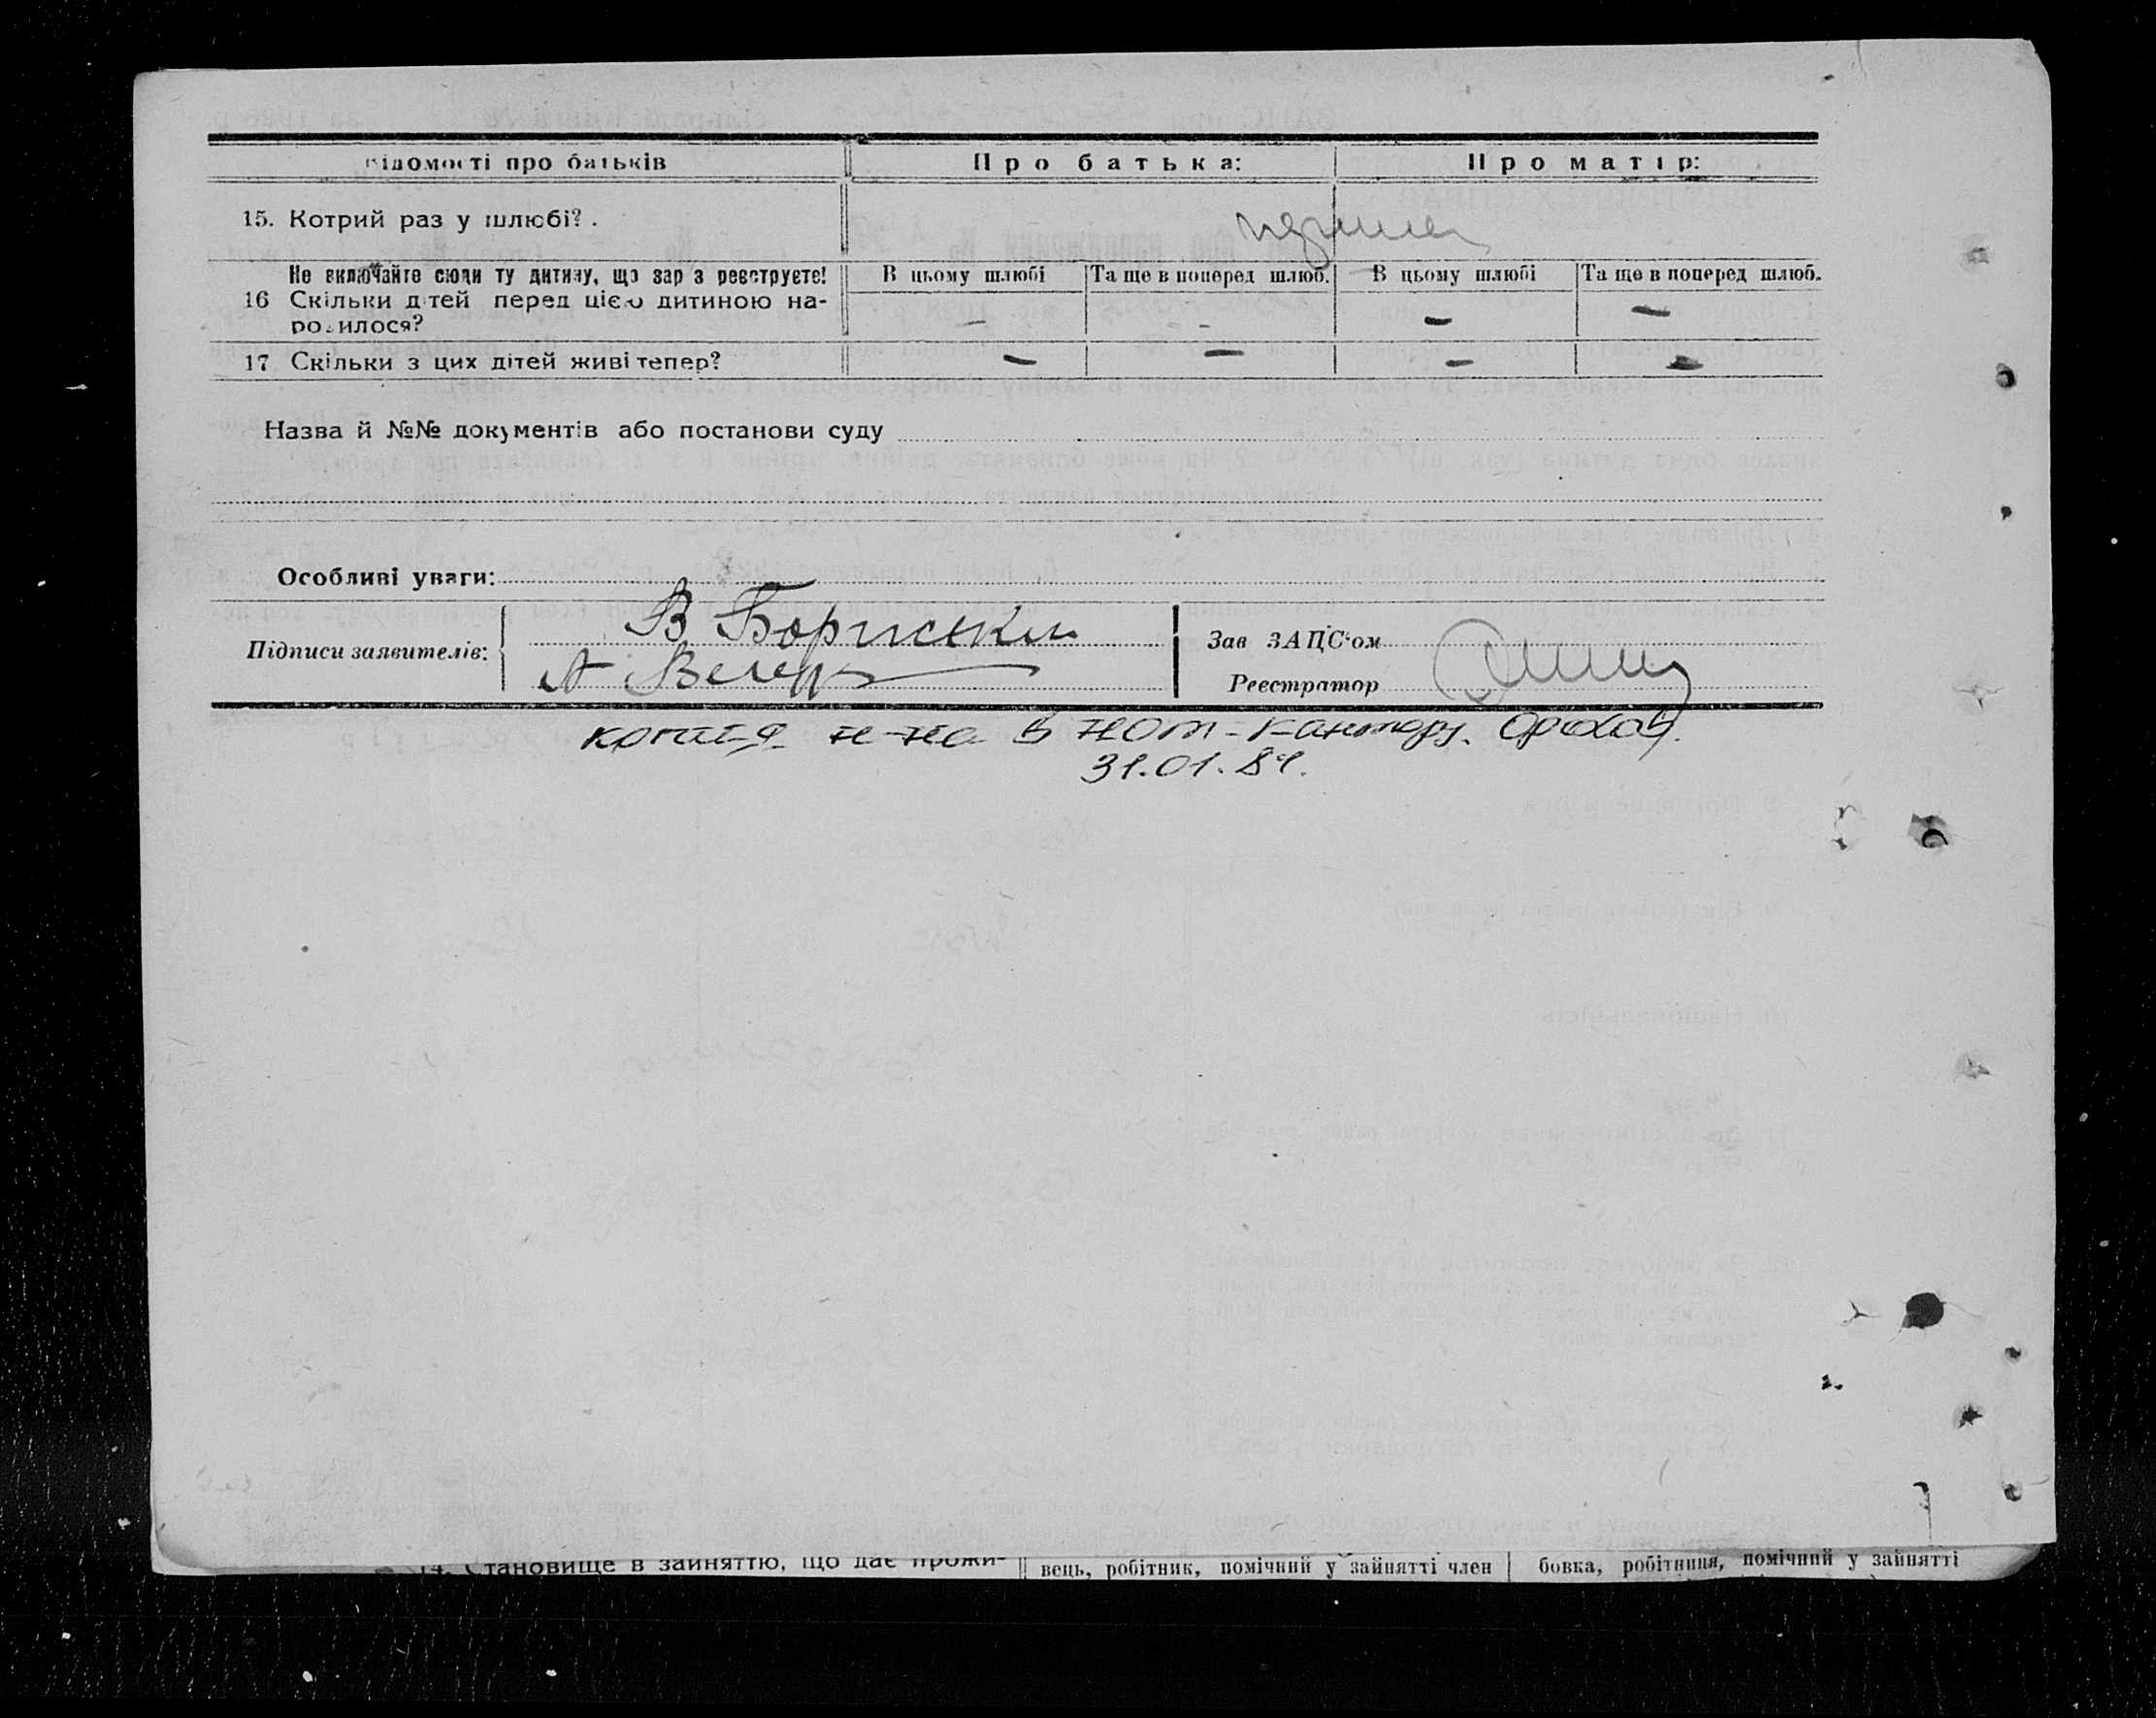 Відомості про батьків Про батька: Про матір:
15. Котрий раз у шлюбі? .
Не включайте сюди ту дитину, що зар з реєструєте! В цьому шлюбі Та ще в поперед шлюб. В цьому шлюбі Та ще в поперед шлюб.
16 Скільки дітей перед цією дитиною на- — - — —
родилося?
17 Скільки з цих дітей живі тепер? — — — —
Назва й №№ документів або постанови суду
Особливі уваги:
Підписи заявителів: В. Зав ЗАЦС'ом
А Реєстратор
копия н-на в нот-кантору.
31.01.84.
14. Становище в зайняттю, що дає прожи- вець, робітник, помічний у зайнятті член бовка, робітниця, помічний у зайнятті